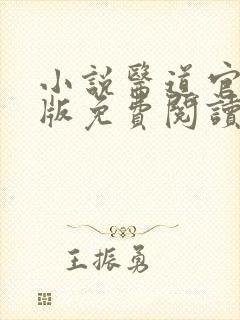 小說醫道官
版免費閱讀
王振勇